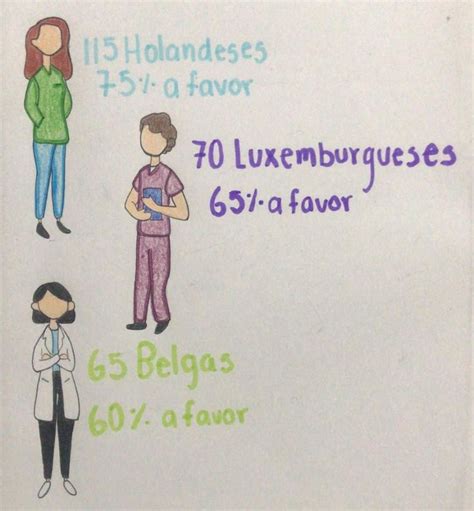 115 Holandeses
75% a favor
70 Luxemburgueses
65% a favor
65 Belgas
60% a favor